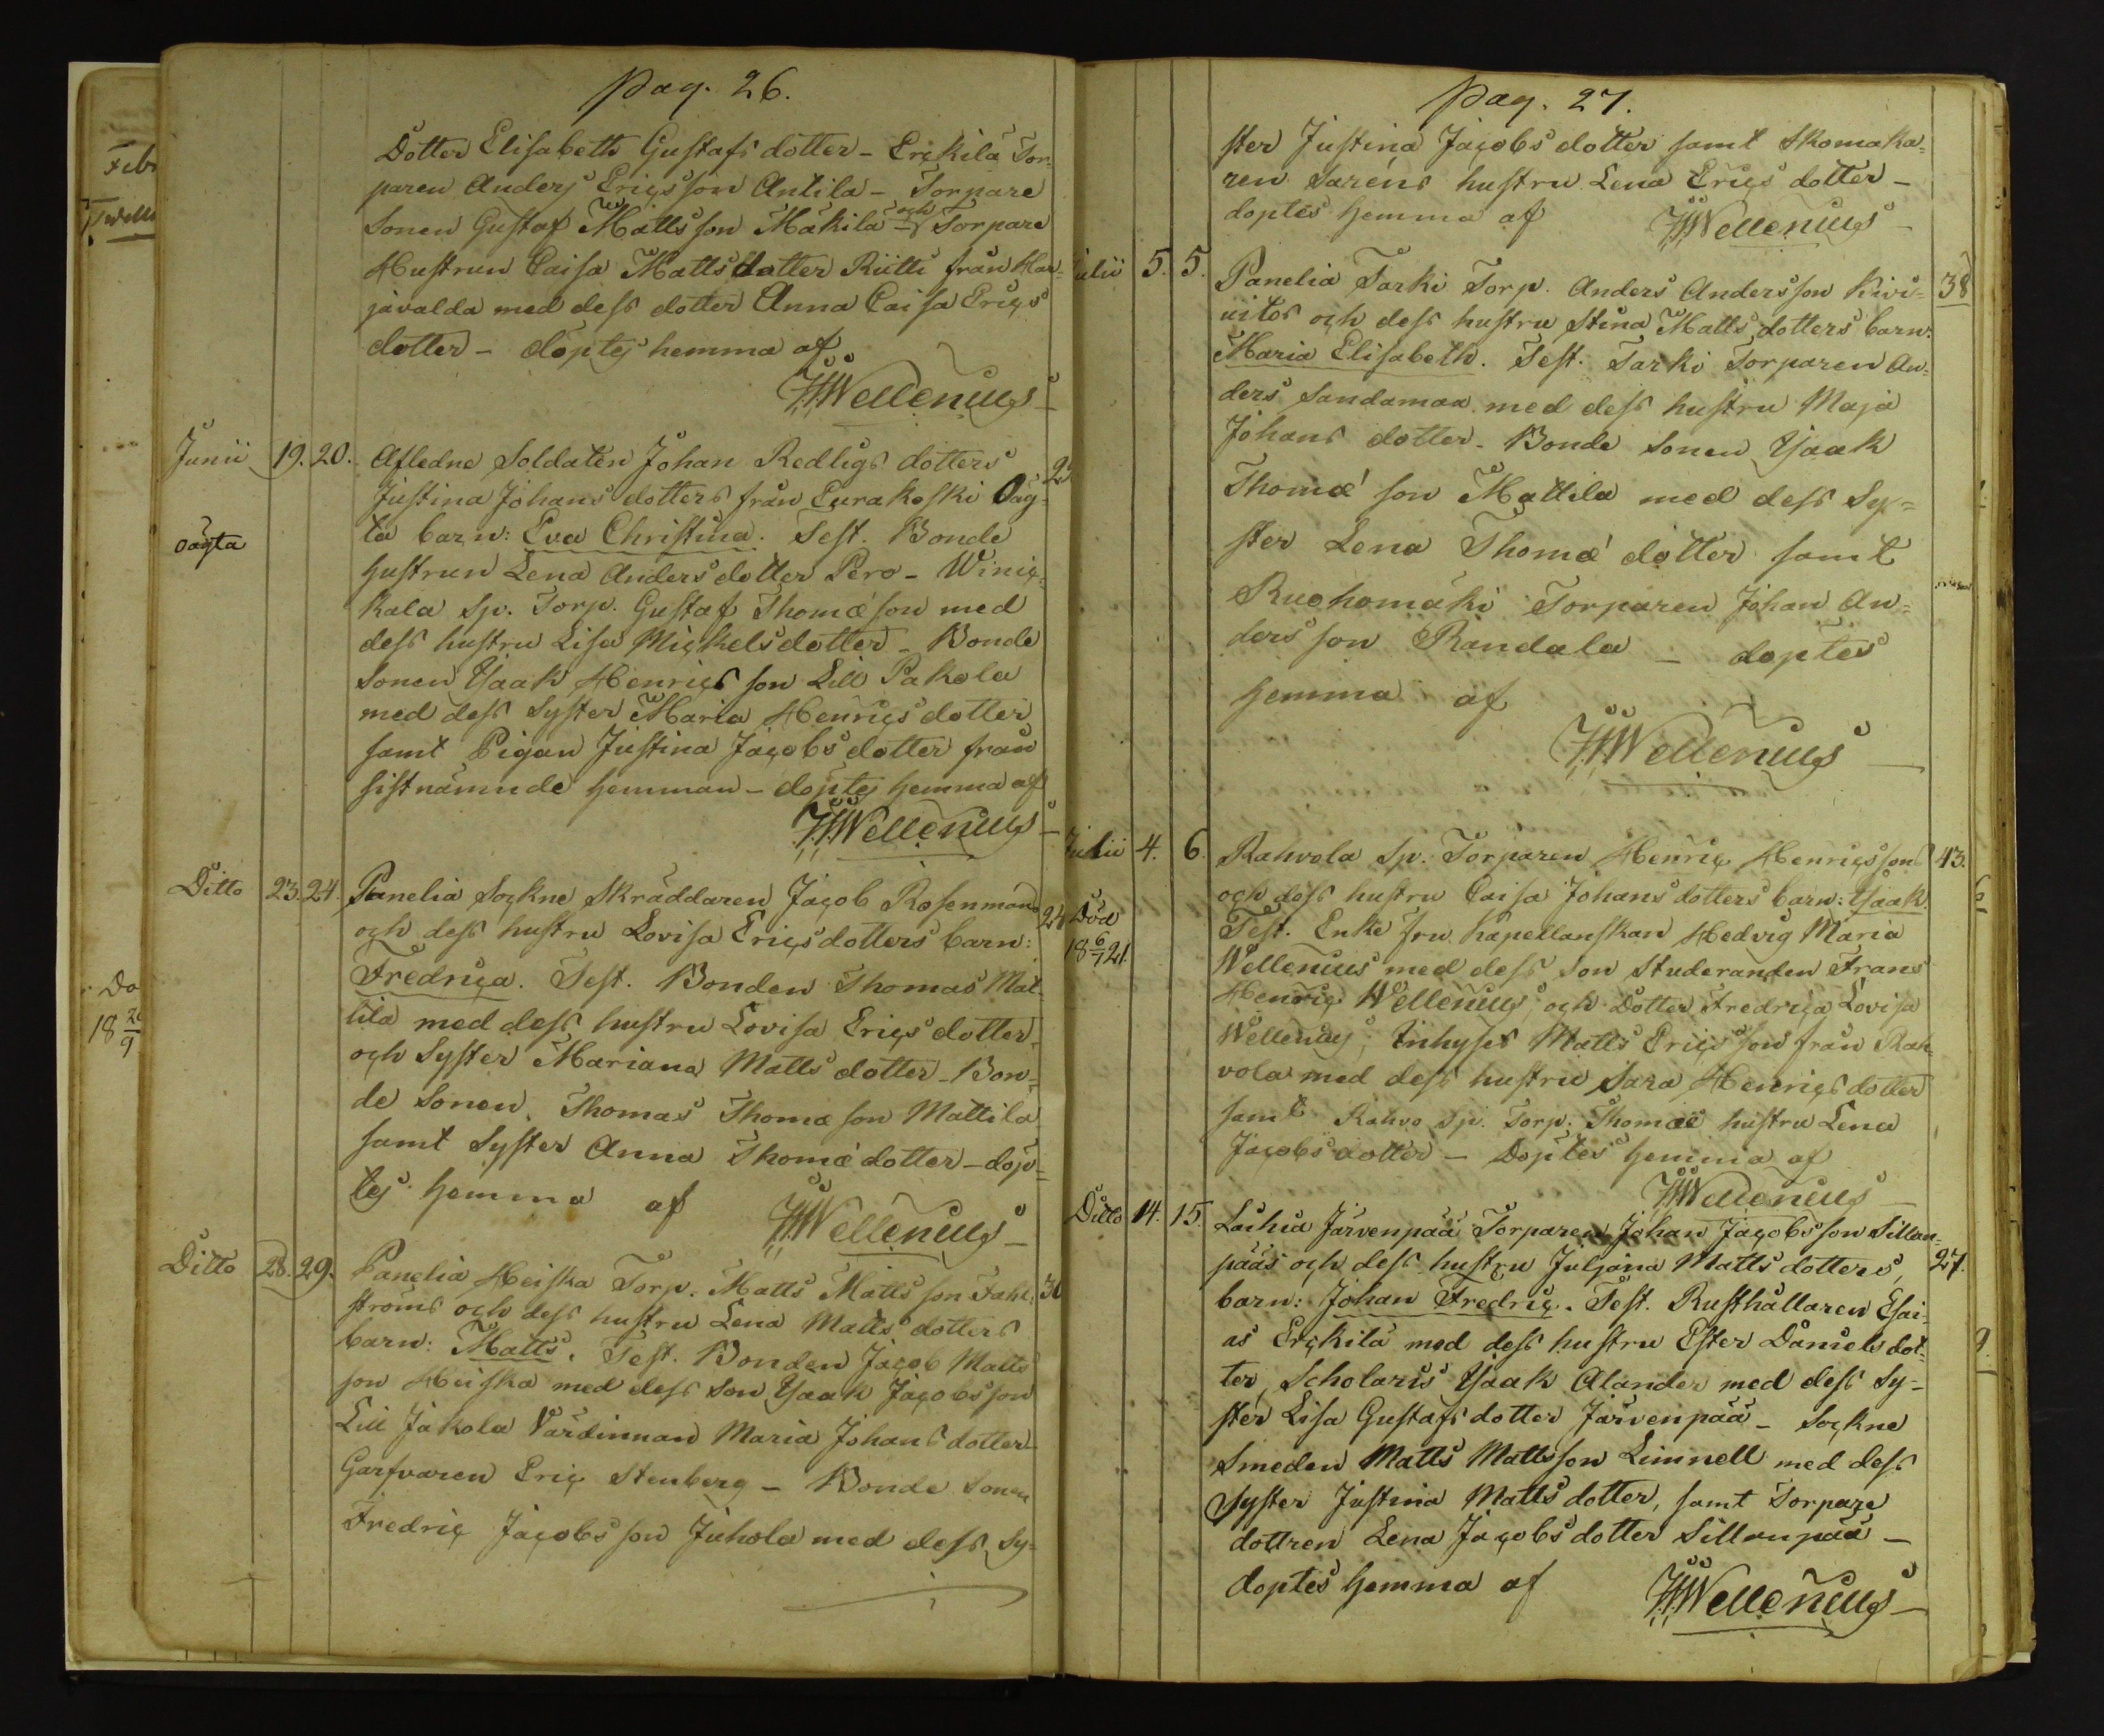 pag. 26.
Dotter Elisabeth Gustafs dotter - Erckilä Tor-
paren Anders Ericsson Antila - Torpare
Sonen Gustaf Mattsson Mäkilä och Torpare
Hustrun Caisa Matts dotter Riitti från Har-
javalda med dess dotter Anna Caisa Erics
dotter - döptes hemma af
HWellenius
Junii 19. 20. Afledne Soldaten Johan Redligs dotters
Justina Johans dotters från Eurakoski Oäg-
oägta
ta barn: Eva Christina. Test. Bonde
hustrun Lena Anders dotter Pero - Winic-
kala Sp. Torp. Gustaf Thomæ son med
dess hustru Lisa Mickelsdotter - Bonde
Sonen Ysaak Henrics son Lill Pakola
med dess Syster Maria Henrics dotter
samt Pigan Justina Jacobs dotter från
sistnämnde hemman - döptes hemma af
HWellenius
Ditto 23. 24. Panelia Sockne Skräddaren Jacob Rosenmans 24
och dess hustru Lovisa Ericsdotters barn:
Fredrica. Test. Bonden Thomas Mat-
tila med dess hustru Lovisa Erics dotter
och Syster Mariana Matts dotter - Bon-
de Sonen Thomas Thomæ son Mattila
samt Syster Anna Thomæ dotter - döp-
tes hemma af HWellenius
Ditto 28. 29. Panelia Heiska Torp. Matts Matts son Fahl-
ströms och dess hustru Lena Matts dotters
barn: Matts. Test. Bonden Jacob Matts
son Heiska med dess Son Ysaak Jacobsson
Lill Jakola Värdinnan Maria Johans dotter
Garfvaren Eric Stenberg - Bonde Sonen
Fredric Jacobs son Juhola med dess Sy-
pag. 27.
ster Justina Jacobs dotter samt Skomaka-
ren Sarens hustru Lena Erics dotter -
döptes hemma af HWellenius
Julii 5. 5. Panelia Tarki Torp. Anders Andersson Kivi- 38
uitos och dess hustru Stina Matts dotters barn:
Maria Elisabeth. Test. Tarki Torparen An-
ders Sandamaa med dess hustru Maja
Johans dotter - Bonde Sonen Ysaak
Thomæ son Mattila med dess Sy-
ster Lena Thomæ dotter samt
Ruohomäki Torparen Johan An-
ders son Randala - döptes
hemma af
HWellenius
Julii 4. 6. Rahvola Sp. Torparen Henric Henricssons 43.
och dess hustru Caisa Johans dotters barn: Ysaak.
Död
18 6/7 21.
Test. Enke fru Kapellanskan Hedvig Maria
Wellenius med dess Son Studeranden Frans
Henric Wellenius, och Dotter Fredrica Lovisa
Wellenius, Inhyses Matts Erics son från Rah
vola med dess hustru Sara Henrics dotter
samt Rahvo Sp. Torp. Thomæ hustru Lena
Jacobs dotter - Döptes hemma af
HWellenius
Ditto 14. 15. Laihia Järvenpää Torparen Johan Jacobs son Sillan-
pääs och dess hustru Juljana Matts dotters 27.
barn: Johan Fredric. Test. Rusthållaren Esai-
as Erckilä med dess hustru Ester Daniels dot-
ter, Scholaris Ysaak Alander med dess Sy-
ster Lisa Gustafs dotter Järvenpää - Sockne
Smeden Matts Mattsson Limnell med dess
Syster Justina Matts dotter, samt Torpare
dottren Lena Jacobs dotter Sillanpää -
döptes hemma af HWellenius